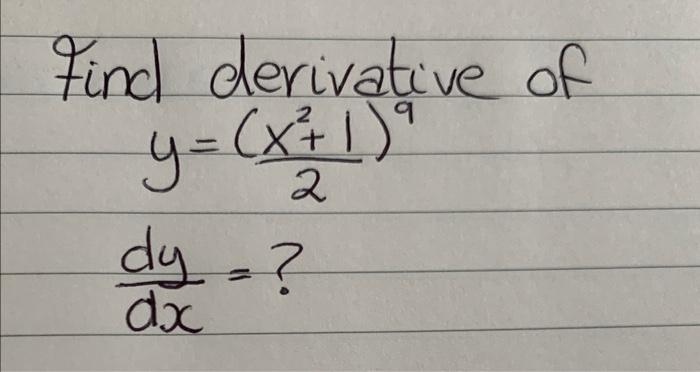 Find derivative of
y = (x² + 1)⁹ / 2
dy/dx = ?